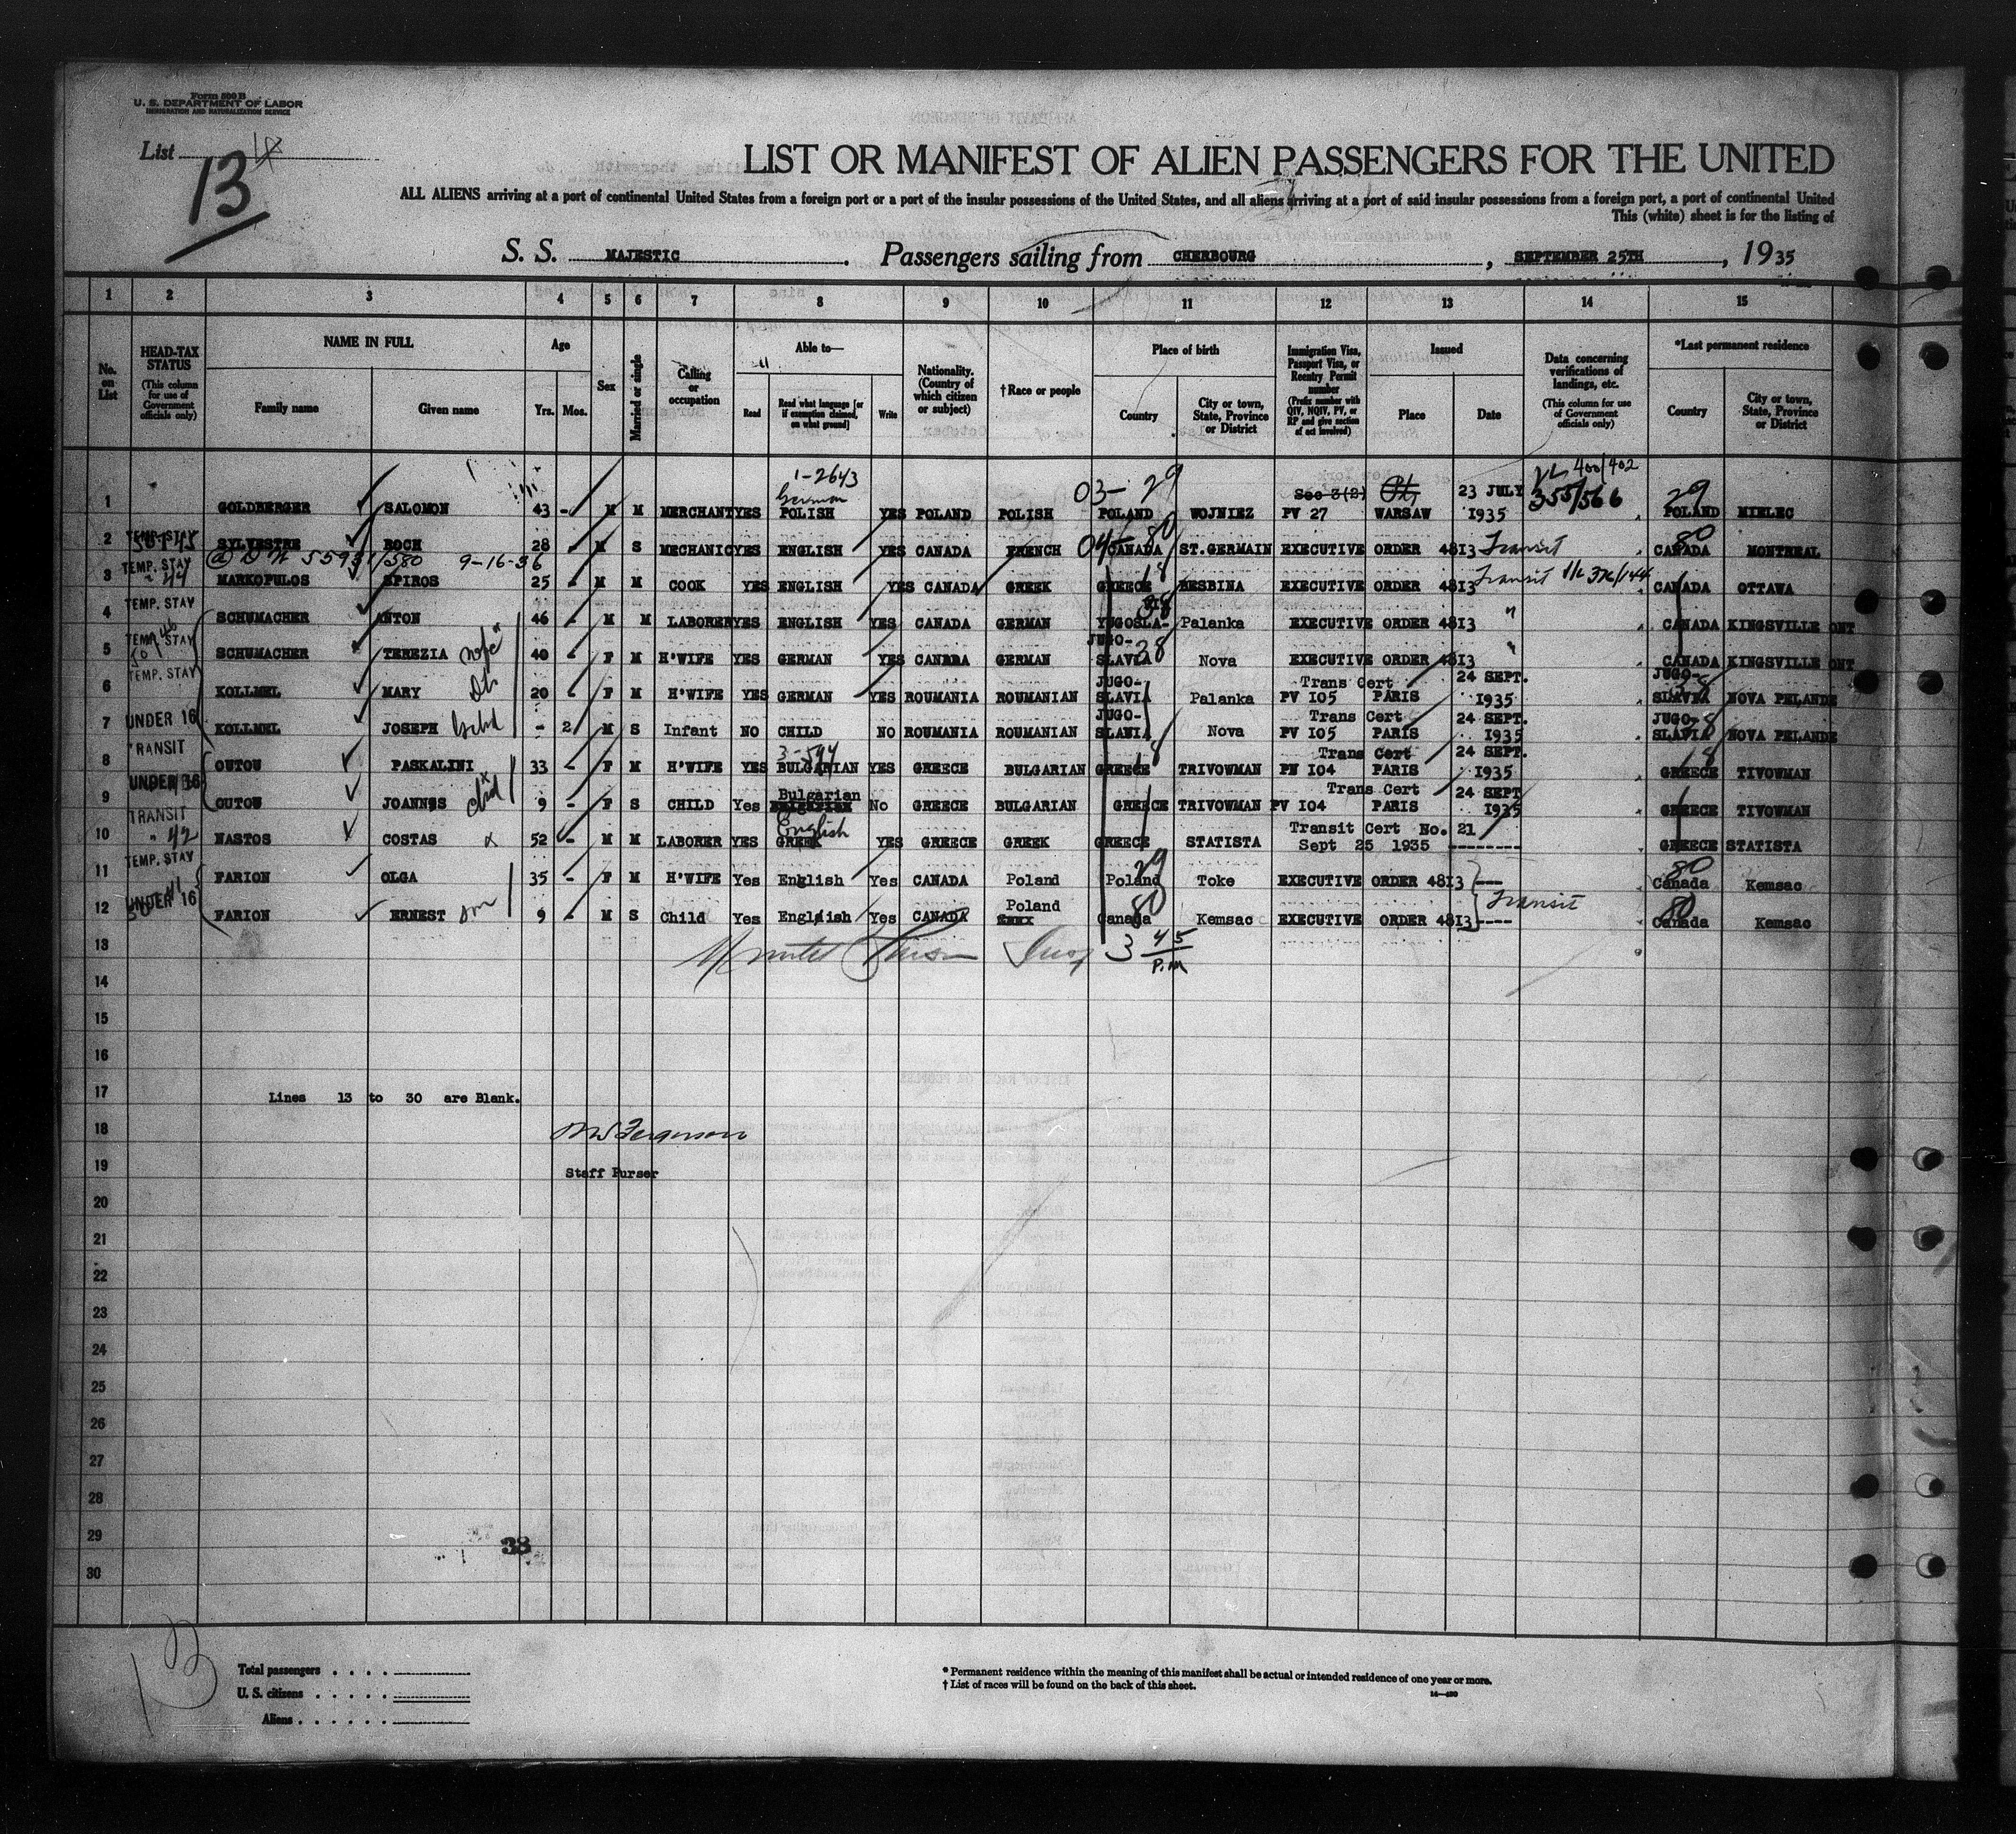 Form 500 B
U. S. DEPARTMENT OF LABOR
IMMIGRATION AND NATURALIZATION SERVICE
List 14
13
LIST OR MANIFEST OF ALIEN PASSENGERS FOR THE UNITED
ALL ALIENS arriving at a port of continental United States from a foreign port or a port of the insular possessions of the United States, and all aliens arriving at a port of said insular possessions from a foreign port, a port of continental United
This (white) sheet is for the listing of
S. S. MAJESTIC. Passengers sailing from CHERBOURG, SEPTEMBER 25TH, 1935
1 2 3 4 5 6 7 8 9 10 11 12 13 14 15
No. on List
HEAD-TAX STATUS (This column for use of Government officials only)
NAME IN FULL
Family name Given name
Age
Yrs. Mos.
Sex
Married or single
Calling or occupation
Able to—
Read Read what language [or if exemption claimed, on what ground] Write
Nationality. (Country of which citizen or subject)
†Race or people
Place of birth
Country City or town, State, Province or District
Immigration Visa, Passport Visa, or Reentry Permit number (Prefix number with QIV, NQIV, PV, or RP and give section of act involved)
Issued
Place Date
Data concerning verifications of landings, etc. (This column for use of Government officials only)
*Last permanent residence
Country City or town, State, Province or District
1-2643 03-29 400/402
German Sec 3(2) 23 JULY 355/566 29
1 GOLDBERGER SALOMON 43 - M M MERCHANT YES POLISH YES POLAND POLISH POLAND WOJNIEZ PV 27 WARSAW 1935 POLAND MIELEC
2 TEMP. STAY SYLVESTRE ROCH 28 - M S MECHANIC YES ENGLISH YES CANADA FRENCH 04-80 CANADA ST.GERMAIN EXECUTIVE ORDER 4813 Transit 80 CANADA MONTREAL
55931/580 9-16-36
3 TEMP. STAY 44 MARKOPULOS SPIROS 25 - M M COOK YES ENGLISH YES CANADA GREEK GREECE BESBINA EXECUTIVE ORDER 4813 Transit 376/144 CANADA OTTAWA
4 TEMP. STAY SCHUMACHER ANTON 46 - M M LABORER YES ENGLISH YES CANADA GERMAN YUGOSLA- Palanka EXECUTIVE ORDER 4813 " CANADA KINGSVILLE ONT
5 TEMP. STAY SCHUMACHER TEREZIA wife 40 - F M H'WIFE YES GERMAN YES CANADA GERMAN JUGO-SLAVIA 38 Nova EXECUTIVE ORDER 4813 " CANADA KINGSVILLE ONT
6 TEMP. STAY KOLLMEL MARY 20 - F M H'WIFE YES GERMAN YES ROUMANIA ROUMANIAN JUGO-SLAVIA Palanka Trans Cert PV 105 PARIS 24 SEPT. 1935 JUGO-SLAVIA NOVA PELANDE
7 UNDER 16 KOLLMEL JOSEPH - 2 M S Infant NO CHILD NO ROUMANIA ROUMANIAN JUGO-SLAVIA Nova Trans Cert PV 105 PARIS 24 SEPT. 1935 JUGO-SLAVIA NOVA PELANDE
8 TRANSIT OUTOU PASKALINI 33 - F M H'WIFE YES 3-594 BULGARIAN YES GREECE BULGARIAN GREECE TRIVOWMAN Trans Cert PV 104 PARIS 24 SEPT. 1935 GREECE TIVOWMAN
9 UNDER 16 OUTOU JOANNES 9 - F S CHILD Yes Bulgarian No GREECE BULGARIAN GREECE TRIVOWMAN Trans Cert PV 104 PARIS 24 SEPT 1935 GREECE TIVOWMAN
10 TRANSIT 42 NASTOS COSTAS x 52 - M M LABORER YES English GREEK YES GREECE GREEK GREECE STATISTA Transit Cert No. 21 Sept 25 1935 -------- GREECE STATISTA
11 TEMP. STAY FARION OLGA 35 - F M H'WIFE Yes English Yes CANADA Poland Poland 29 Toke EXECUTIVE ORDER 4813 --- 80 Canada Kemsac
12 UNDER 16 FARION ERNEST son 9 - M S Child Yes English Yes CANADA Poland Canada 80 Kemsac EXECUTIVE ORDER 4813 ---- Transit 80 Canada Kemsac
13 3 45 P.M
14
15
16
17 Lines 13 to 30 are Blank.
18 Ferguson
19 Staff Purser
20
21
22
23
24
25
26
27
28
29 38
30
13
Total passengers . . . .
U. S. citizens . . . . .
Aliens . . . . . .
* Permanent residence within the meaning of this manifest shall be actual or intended residence of one year or more.
† List of races will be found on the back of this sheet.
14—430